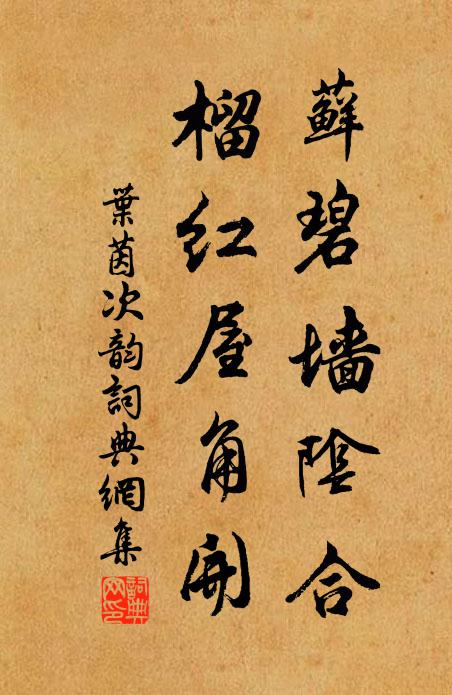 蘚碧墻陰合
榴红屋角開
葉茵次韵詞典網集
詞典网印